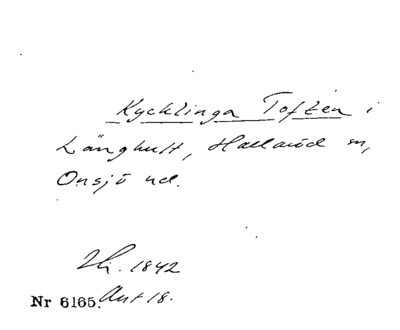 Kycklinga Toften i
Långhult, Hallaröd sn,
Onsjö hd.
Hi. 1842
Nr 6165. Akt 18.